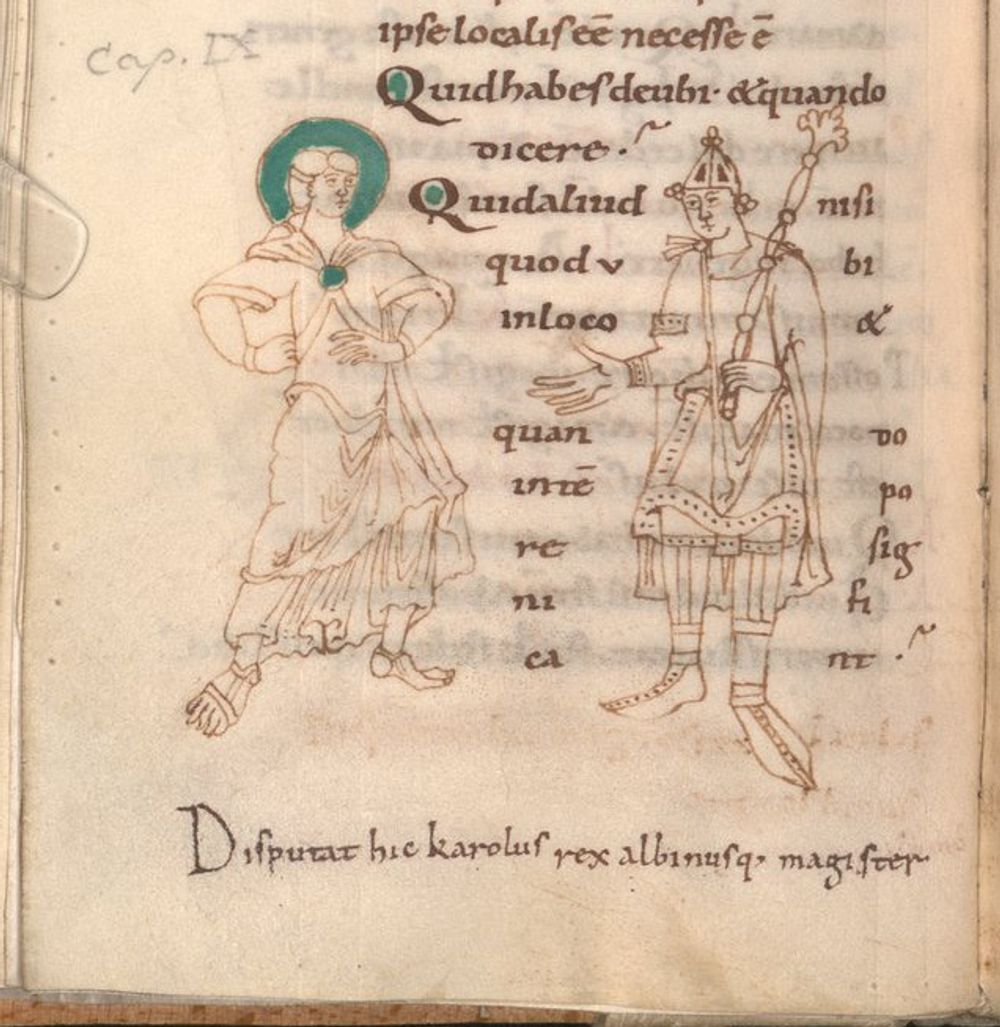 ipse localis eē necesse ē
cap. IX
Quid habes de ubi· & quando
dicere·
Quid aliud nisi
quod v bi
in loco &
quan do
in tē po
re sig
ni fi
ca nt·
Disputat hic karolus rex albinusq, magister